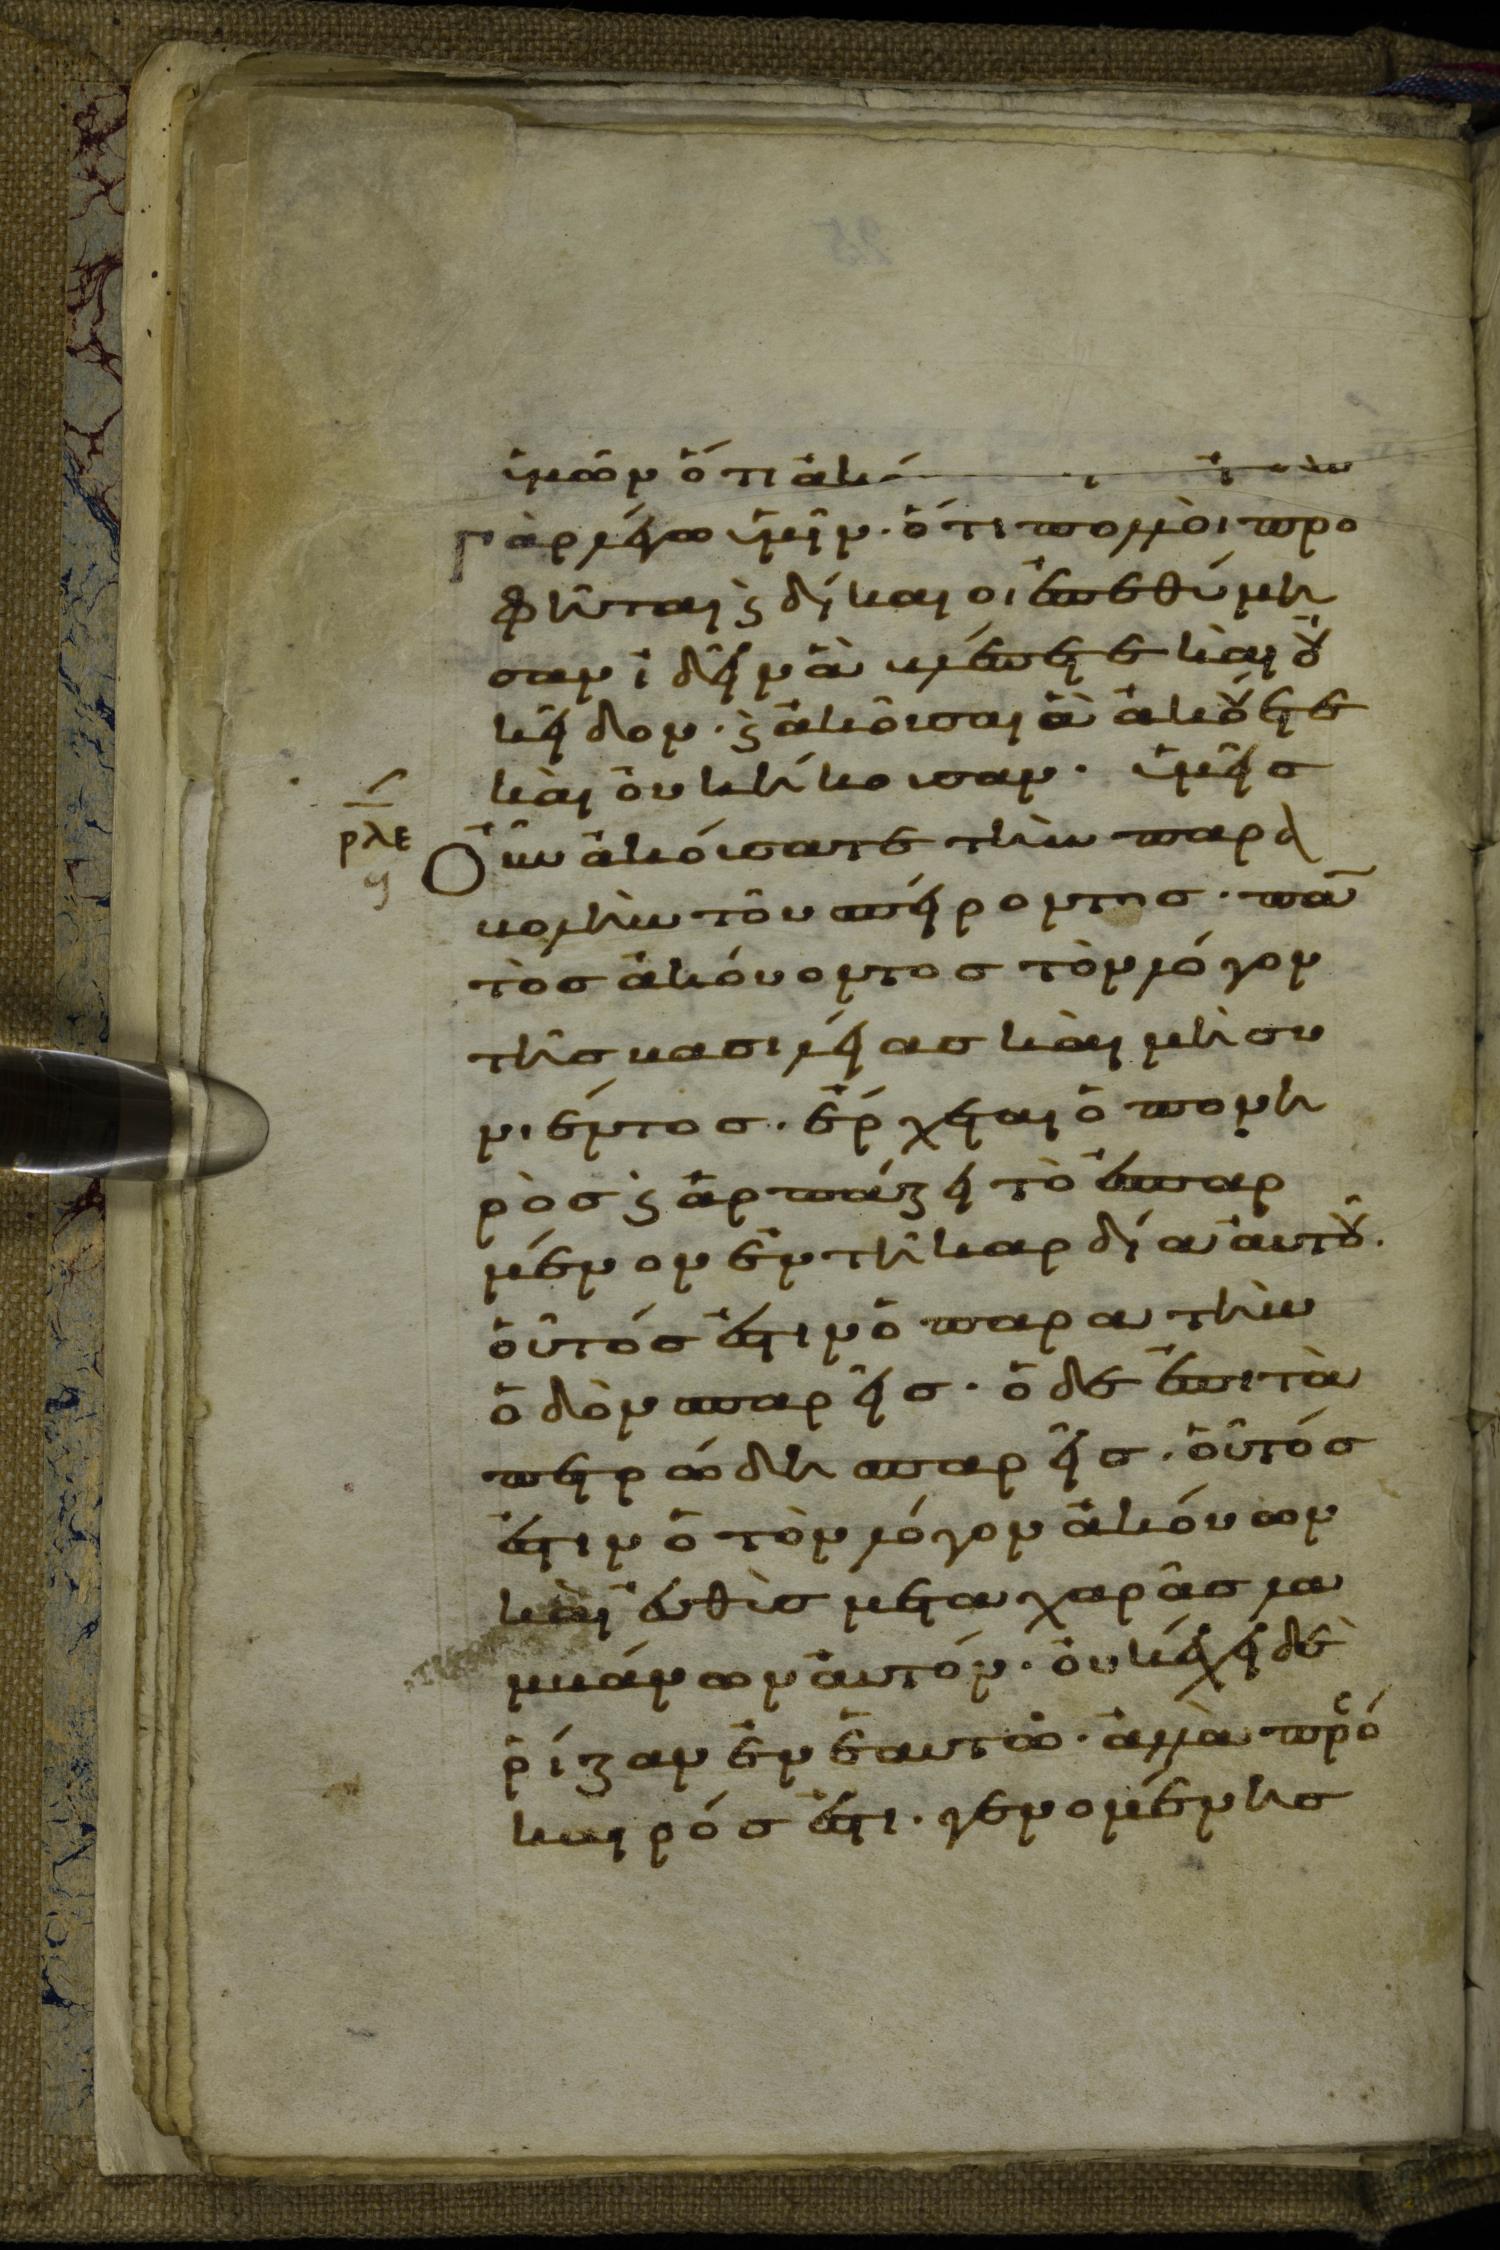 ὑμῶν ὅτι
γὰρ λέγω ὑμῖν. ὅτι πολλοὶ προ
φῆται ϗ δίκαιοι ἐπεθύμη
σαν ἰδεῖν ἃ βλέπετε καὶ οὐ
κ εἶδον. ϗ ἀκοῦσαι ἃ ἀκούετε
καὶ οὐκ ἤκουσαν. ὑμεῖς
ρλε
Οὖν ἀκούσατε τὴν παρα
βολὴν τοῦ σπείροντος. πα
τὸς ἀκούοντος τὸν λόγον
τῆς βασιλείας καὶ μὴ συ
νιέντος. ἔρχεται ὁ πονη
ρὸς ϗ ἁρπάζει τὸ ἐσπαρ
μένον ἐν τῆ καρδία αὐτοῦ.
οὗτός ἐστιν ὁ παρα τὴν
ὁδὸν σπαρείς. ὁ δὲ ἐπι τὰ
πετρώδη σπαρείς. οὗτός
ἐστιν ὁ τὸν λόγον ἀκούων
καὶ εὐθὺς μετα χαρᾶς λα
μβάνων αὐτόν. οὐκ ἔχει δὲ
ῥίζαν ἐν ἑαυτῶ. ἀλλὰ πρόσ
καιρός ἐστι. γενομένης